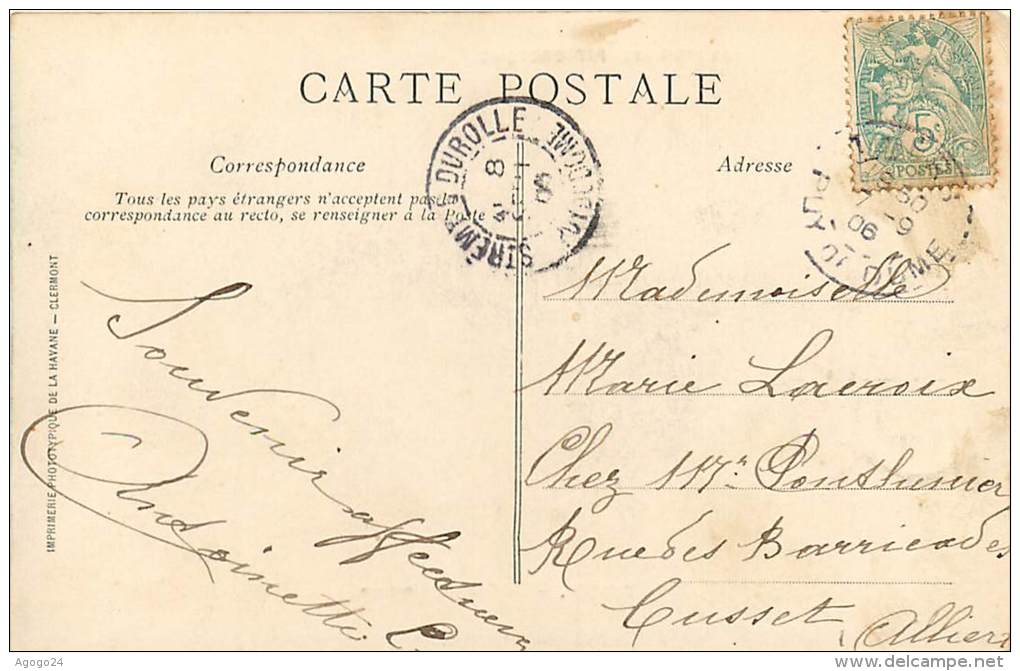 CARTE POSTALE
Correspondance
Adresse
Tous les pays étrangers n'acceptent pas la
correspondance au recto, se renseigner à la Poste
IMPRIMERIE PHOTOTYPIQUE DE LA HAVANE — CLERMONT
DUROLLE
PUY-DE-DOME
8
06
5c
POSTES
PUY
DOME
06
Souvenir affectueux
Antoinette
Mademoiselle
Marie Lacroix
Chez Mr
Rue des Barricades
Cusset (Allier)
Agogo24
www.delcampe.net